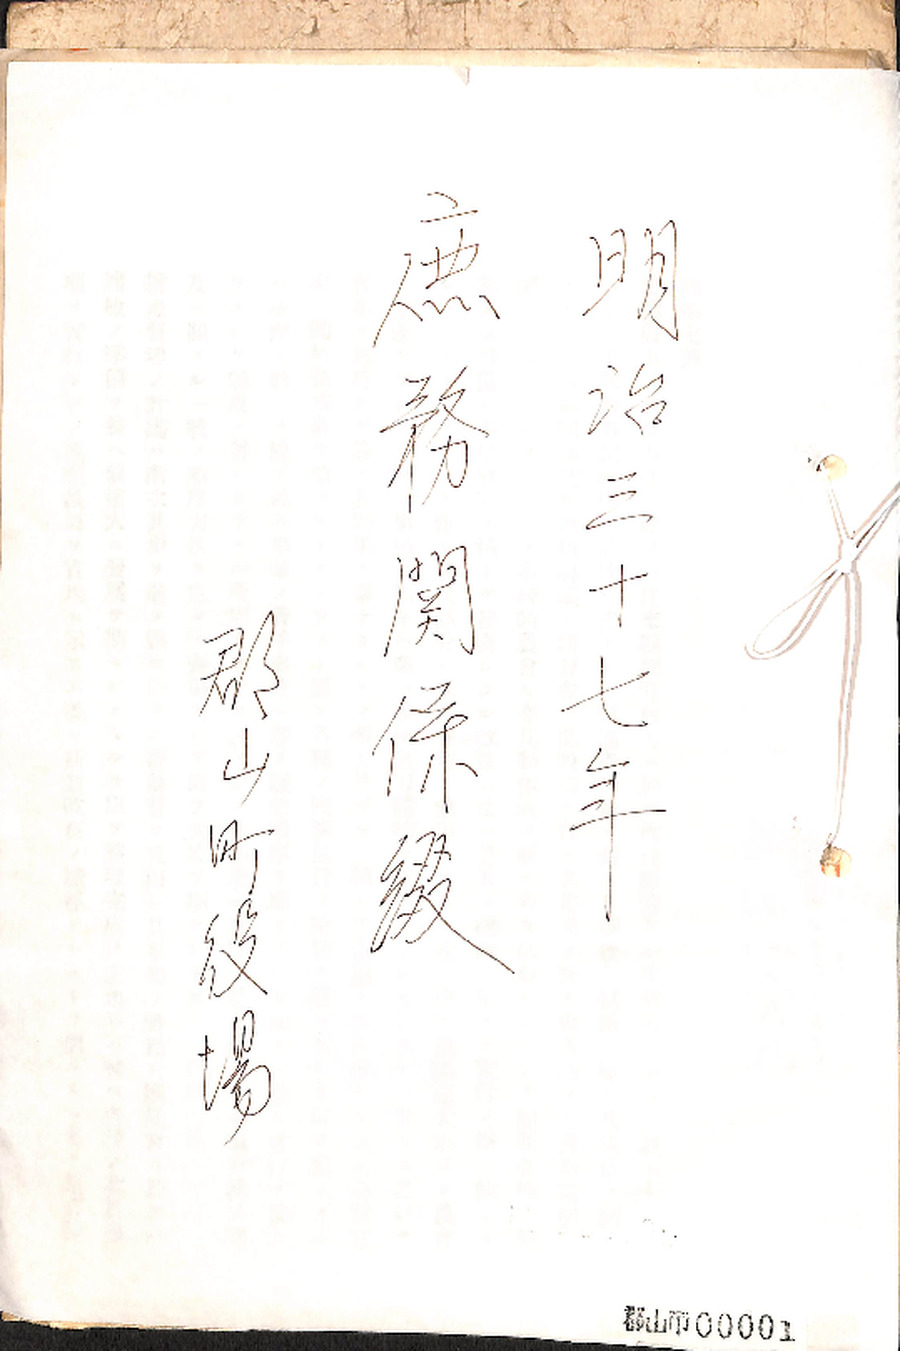 明治三十七年
庶務関係綴
郡山町役場
郡山市00001